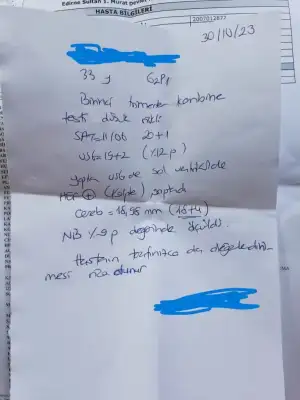 Edirne Sultan 1. Murat Devlet
HASTA BİLGİLERİ
2007012877
30/10/23
33 y G2P1
Birinci trimester kombine
testi düşük riskli
SAT=11/06 20+1
USG=19+2 (%12p)
yapılan USG de sol ventrikülde
HEF + (kalpte) saptandı
Cereb = 18,98 mm (18+4)
NB %9p değerinde ölçüldü.
Hastanın tarafınızca da değerlendiril-
mesi rica olunur